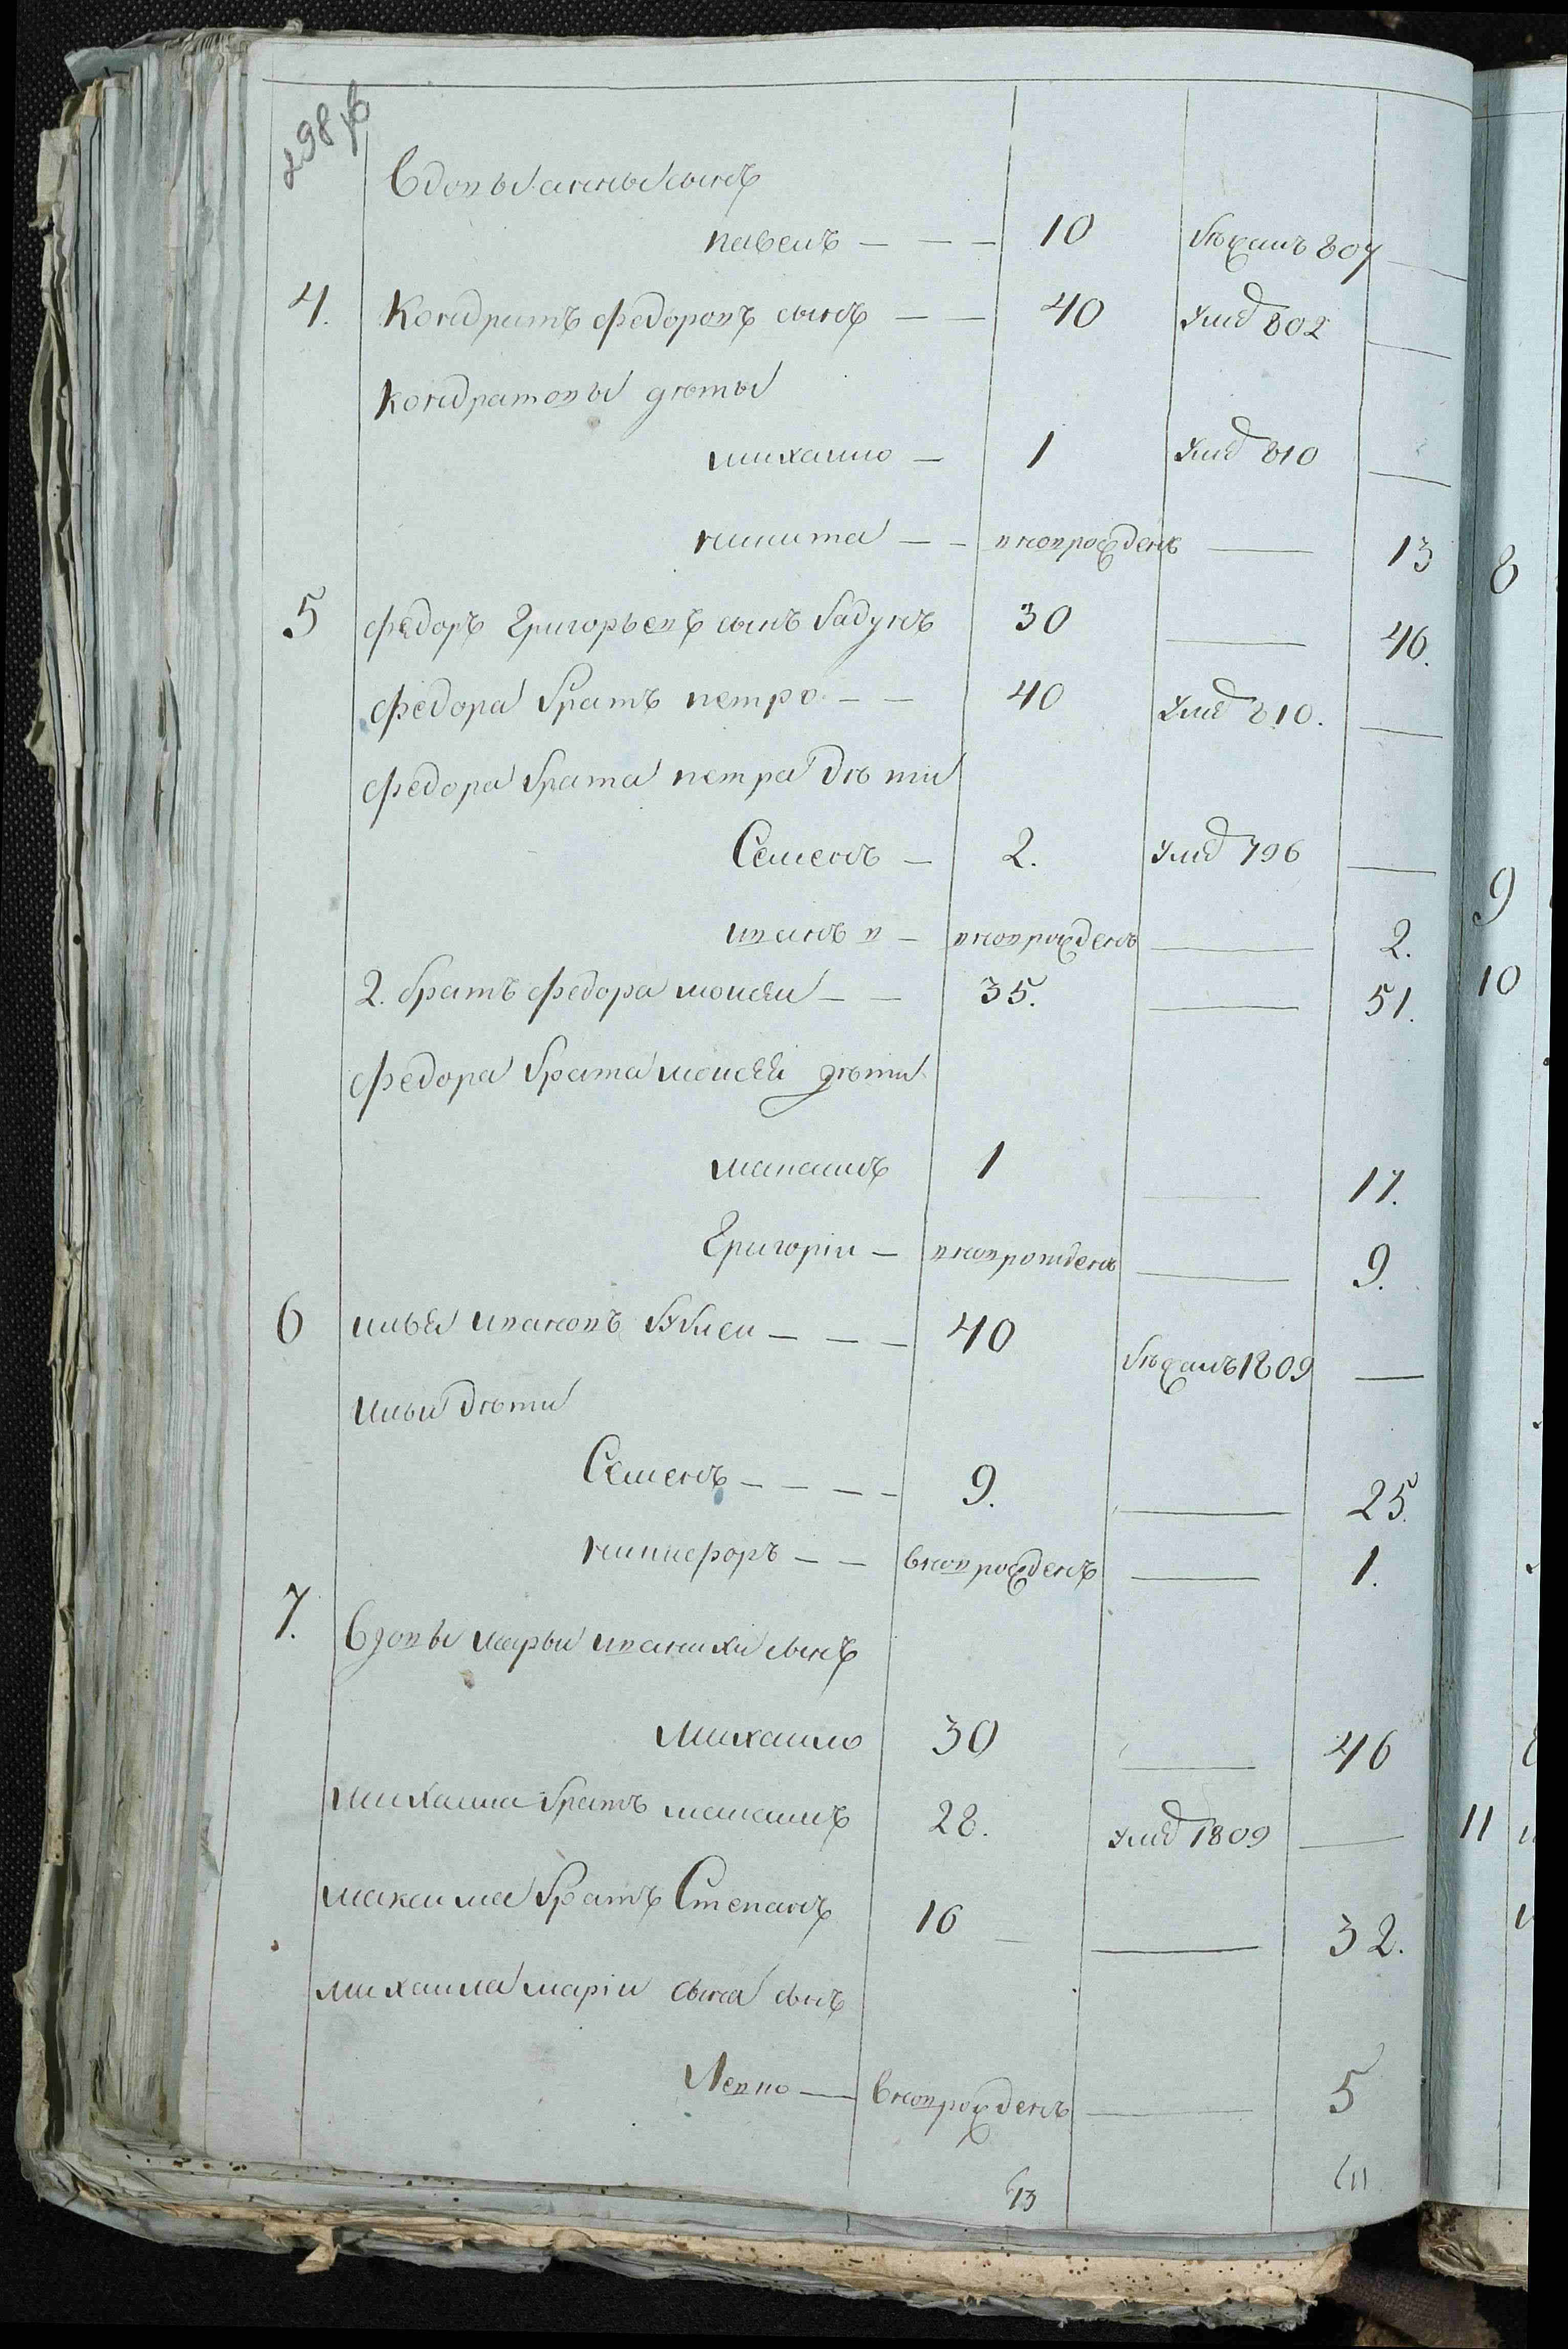 298 об
Вдовы анны сынъ
павелъ — — — 10 бѣжалъ 807 —
4. Кондратъ федоровъ сынъ — — 40 умр 802 —
Кондратовы дѣты
михайло — 1 умр 810 —
никита — — вновьрожденъ — 13
5 федоръ Григорьевъ сынъ бадунъ 30 — 46.
федора братъ петро — — 40 умр 810. —
федора брата петра дѣти
Семенъ — 2. умр 796 —
иванъ — вновьрожденъ — 2.
2. братъ федора моисей — — 35. — 51.
федора брата моисея дѣти
максимъ 1 — 17.
Григорій — вновьрожденъ — 9.
6 илья ивановъ — — — 40 бѣжалъ 1809 —
ильи дѣти
Семенъ — — — — 9. — 25.
никифоръ — — вновьрожденъ — 1.
7. Вдовы марьи иванихи сынъ
Михайло 30 — 46
михаила братъ максимъ 28. умр 1809 —
максима братъ Степанъ 16 — — 32.
михаила маріи сына сынъ
Левко — вновьрожденъ — 5
13 11
8
9
10
11